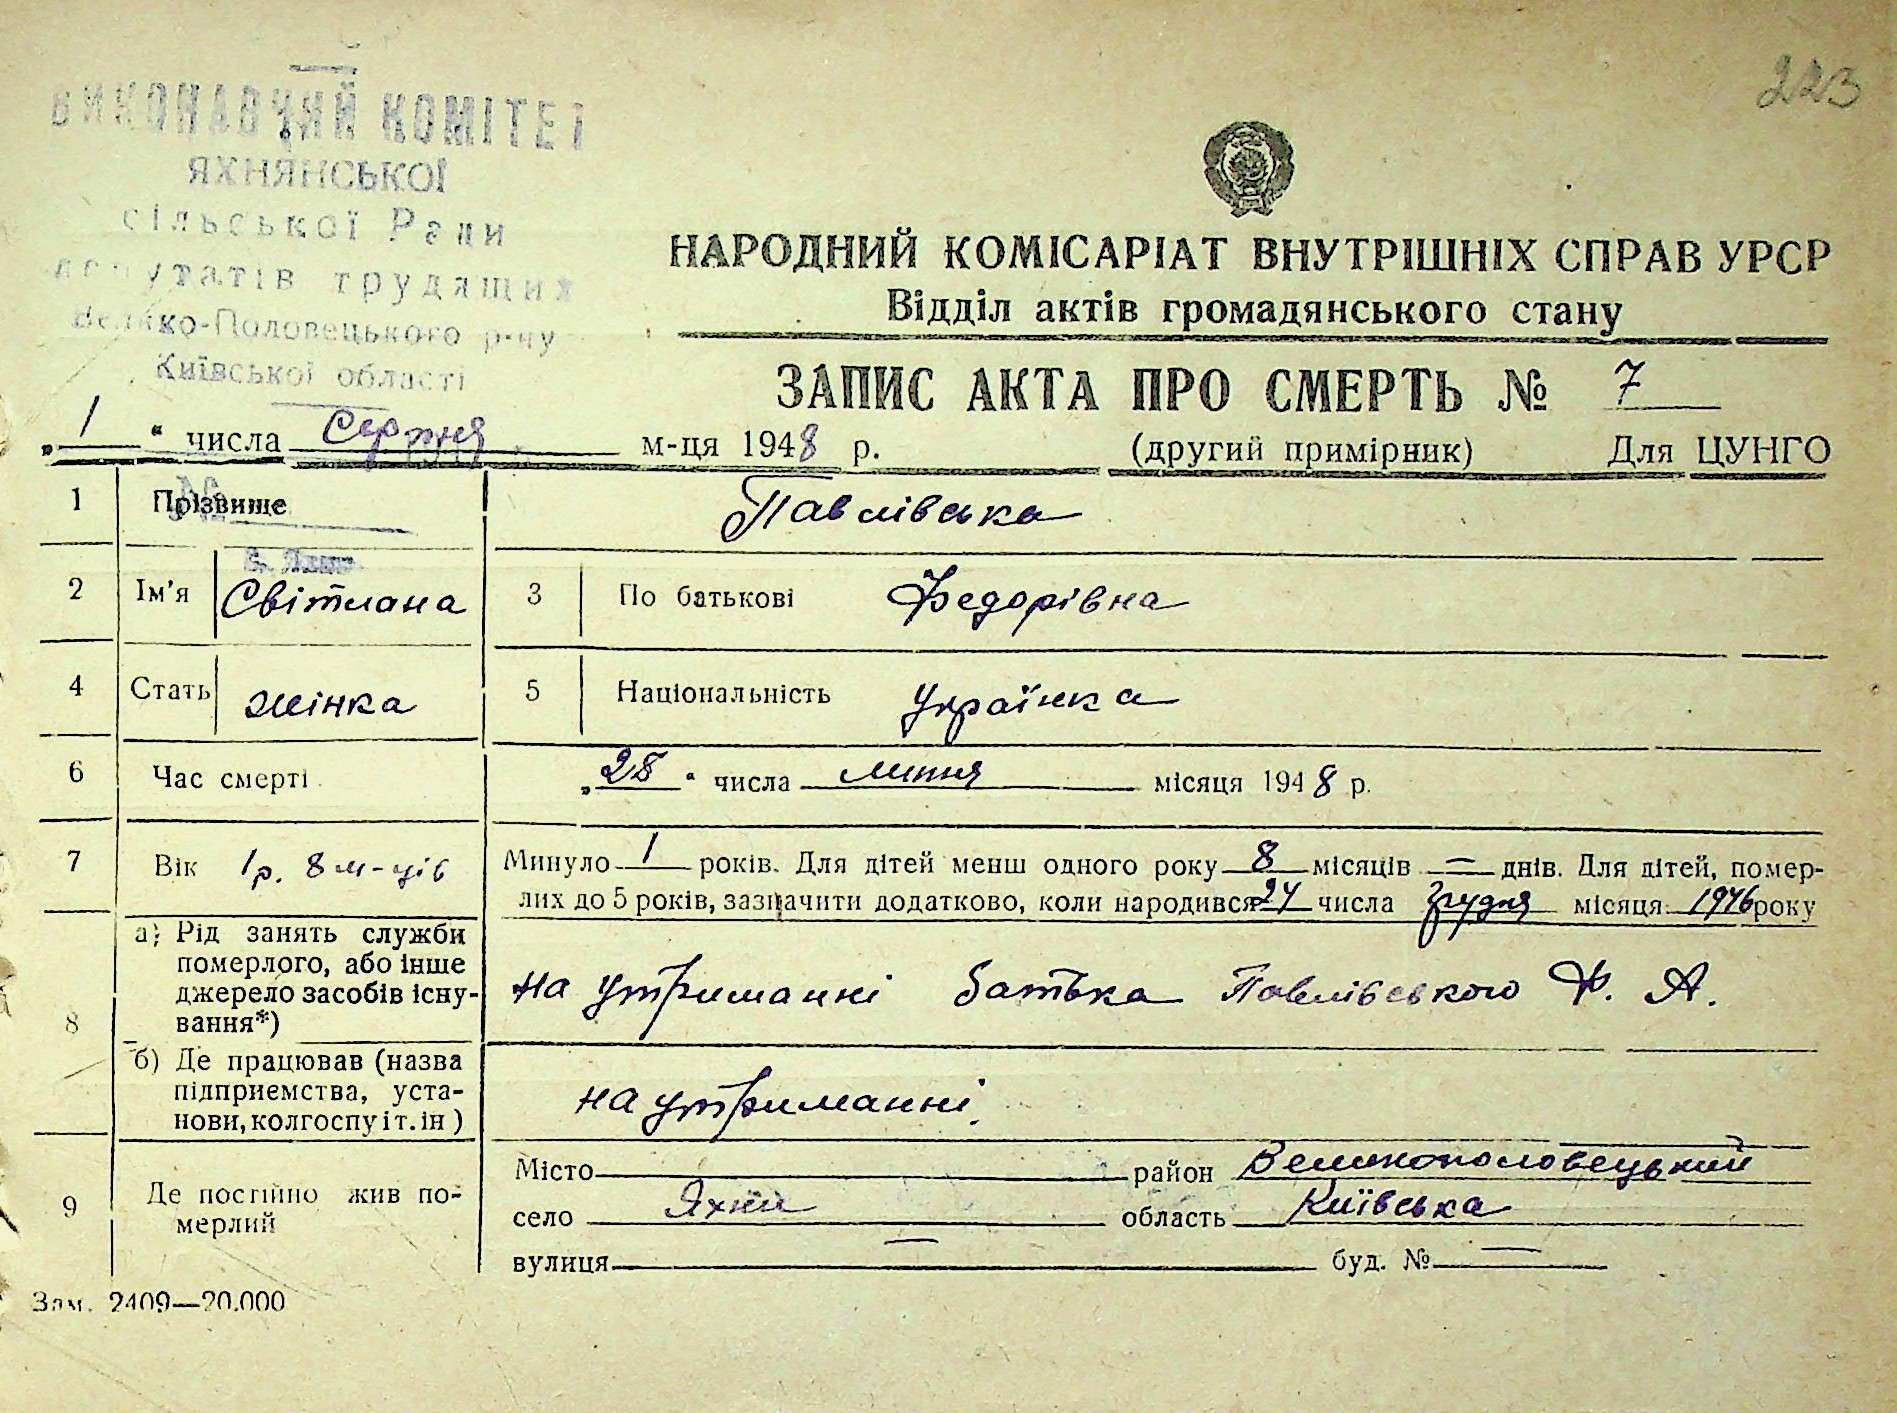 223
ВИКОНАВЧИЙ КОМІТЕТ
ЯХНЯНСЬКОЇ
сільської Ради
депутатів трудящих
Велико-Половецького р-ну
Київської області
НАРОДНИЙ КОМІСАРІАТ ВНУТРІШНІХ СПРАВ УРСР
Відділ актів громадянського стану
ЗАПИС АКТА ПРО СМЕРТЬ № 7
„1“ числа Серпня м-ця 1948 р. (другий примірник) Для ЦУНГО
1 Прізвище Павлівська
2 Ім'я Світлана 3 По батькові Федорівна
4 Стать жінка 5 Національність українка
6 Час смерті „28“ числа липня місяця 1948 р.
7 Вік 1 р. 8 м-ців Минуло 1 років. Для дітей менш одного року 8 місяців = днів. Для дітей, помер-
лих до 5 років, зазначити додатково, коли народився 24 числа грудня місяця 1946 року
8 а) Рід занять служби
померлого, або інше
джерело засобів існу-
вання*) на утриманні батька Павлівського Ф. А.
б) Де працював (назва
підприємства, уста-
нови, колгоспу і т. ін) на утриманні.
9 Де постійно жив по-
мерлий
Місто район Великополовецький
село Яхни область Київська
вулиця — буд. № —
Зам. 2409—20.000